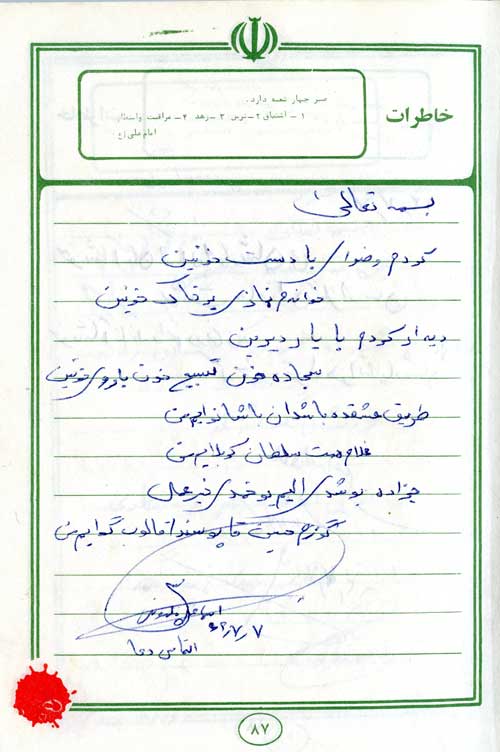 خاطرات
صبر چهار شعبه دارد.
۱ – اشتیاق ۲ – ترس ۳ – زهد ۴ – مراقبت و انتظار
امام علی (ع)
بسمه تعالی
کردم وضوی با دست خونین
خواندم نمازی بر خاک خونین
دیدار کردم با یار دیرین
سجاده خون تسبیح خون با روی خونین
طریق عشقده باشدان باشا نوایم من
غلام همت سلطان کربلایم من
یوخدی خبر عملی
گوزوم حسین قاپوسندا قالوب گدایم من
۶۲/۷/۷
التماس دعا
۸۷